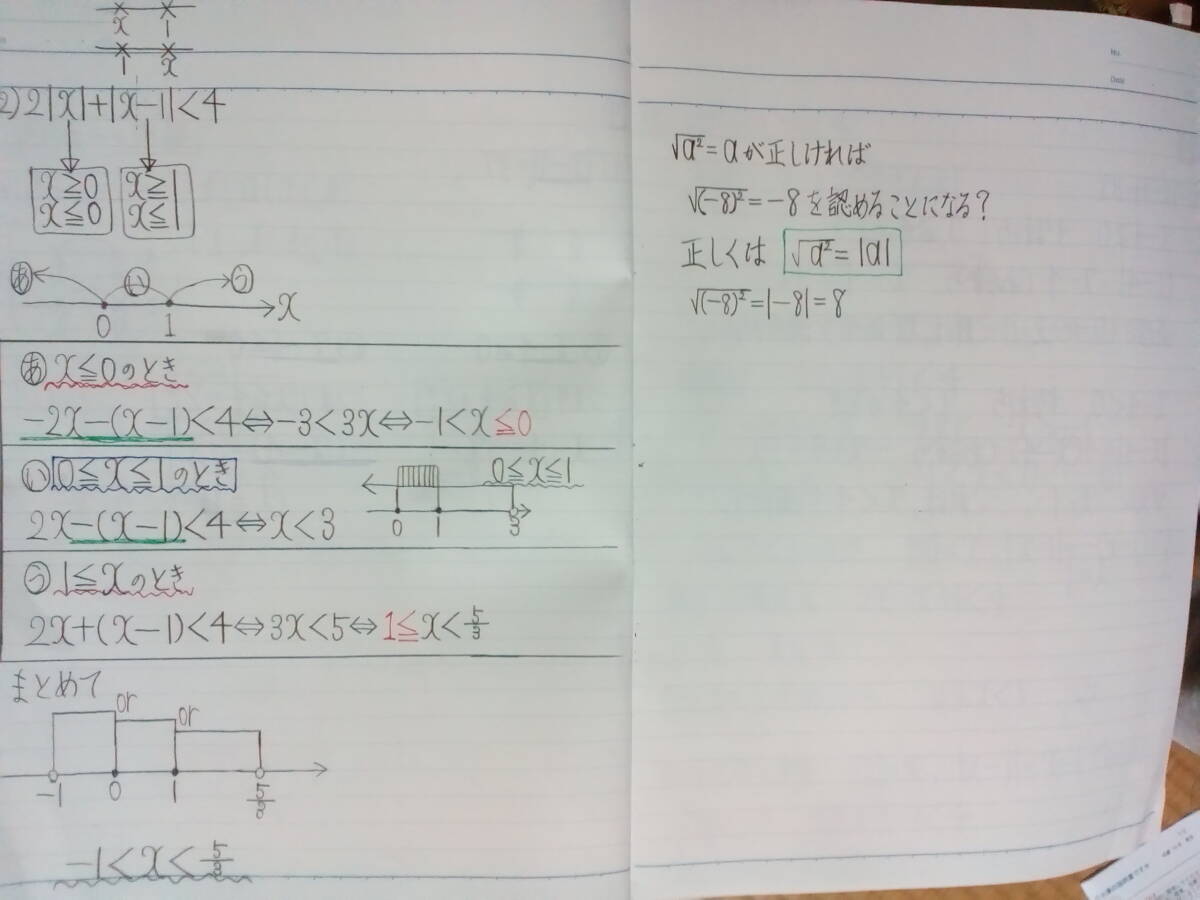 x 1
1 x
2) 2|x|+|x-1|<4
x≧0 x≧1
x≦0 x≦1
あ い う
0 1 x
あ x≦0のとき
-2x-(x-1)<4⇔-3<3x⇔-1<x≦0
い 0≦x≦1のとき
0≦x≦1
2x-(x-1)<4⇔x<3
0 1 3
う 1≦xのとき
2x+(x-1)<4⇔3x<5⇔1≦x<5/3
まとめて
or or
-1 0 1 5/3
-1<x<5/3
No.
Date
√a²=aが正しければ
√(-8)²=-8を認めることになる?
正しくは √a²=|a|
√(-8)²=|-8|=8